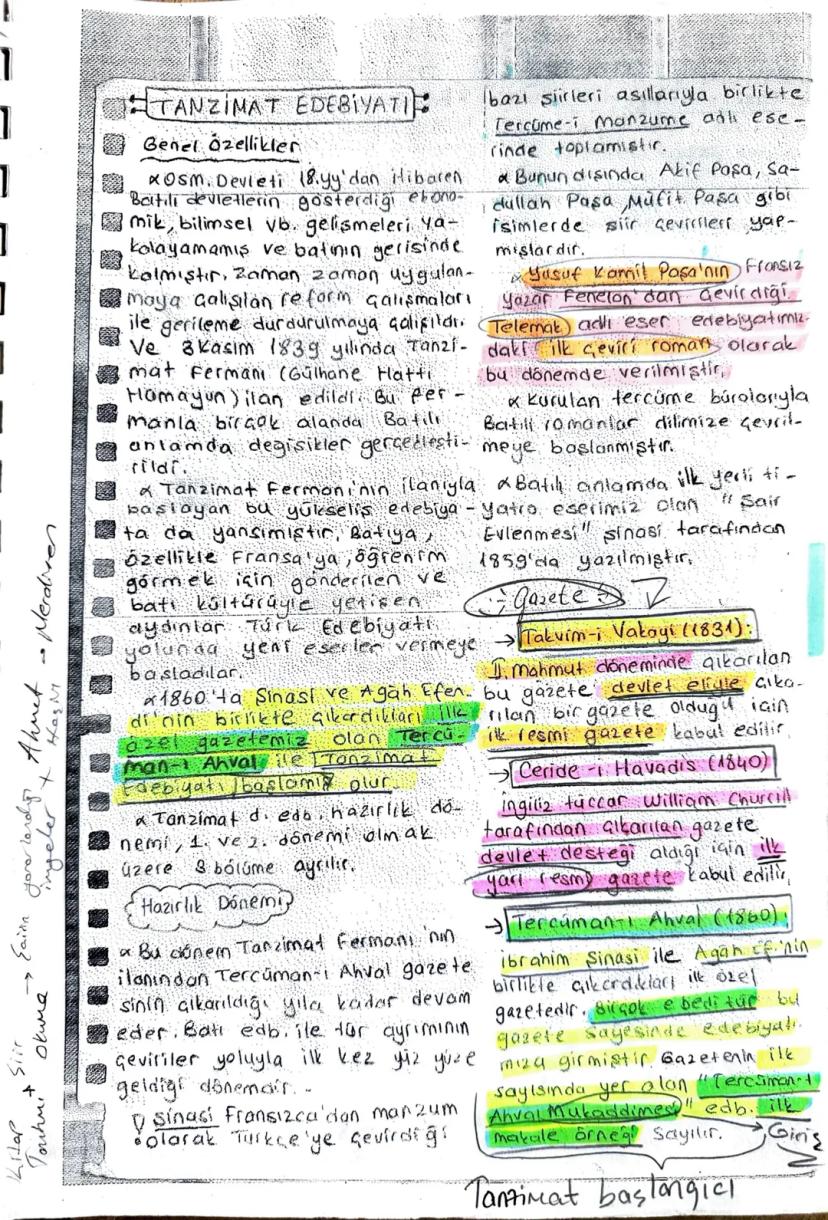 TANZİMAT EDEBİYATI
Genel Özellikler
∝ Osm. Devleti 18.yy'dan itibaren
Batılı devletlerin gösterdiği ekono-
mik, bilimsel vb. gelişmeleri ya-
kalayamamış ve batının gerisinde
kalmıştır. Zaman zaman uygulan-
maya çalışılan reform çalışmaları
ile gerileme durdurulmaya çalışıldı.
Ve 3 Kasım 1839 yılında Tanzi-
mat Fermanı (Gülhane Hattı
Hümayun) ilan edildi. Bu fer-
manla birçok alanda Batılı
anlamda değisikler gerçekleşti-
rildi.
∝ Tanzimat Fermanı'nın ilanıyla
başlayan bu yükseliş edebiya-
ta da yansımıştır. Batıya,
özellikle Fransa'ya, öğrenim
görmek için gönderilen ve
batı kültürüyle yetişen
aydınlar Türk Edebiyatı
yolunda yeni eserler vermeye
başladılar.
∝ 1860'ta Şinasi ve Agâh Efen
di'nin birlikte çıkardıkları ilk
özel gazetemiz olan Tercü-
man-ı Ahval ile Tanzimat
Edebiyatı başlamış olur.
∝ Tanzimat d. edb. hazırlık dö-
nemi, 1. ve 2. dönemi olmak
üzere 3 bölüme ayrılır.
Hazırlık Dönemi
∝ Bu dönem Tanzimat Fermanı'nın
ilanından Tercüman-ı Ahval gazete
sinin çıkarıldığı yıla kadar devam
eder. Batı edb. ile tür ayrımının
çeviriler yoluyla ilk kez yüz yüze
geldiği dönemdir.
Şinasi Fransızca'dan manzum
olarak Türkçe'ye çevirdiği
bazı şiirleri asıllarıyla birlikte
Tercüme-i Manzume adlı ese-
rinde toplamıştır.
∝ Bunun dışında Akif Paşa, Sa-
dullah Paşa, Müfit Paşa gibi
isimlerde şiir çevirileri yap-
mışlardır.
∝ Yusuf Kamil Paşa'nın Fransız
yazar Fenelon'dan çevirdiği
Telemak adlı eser edebiyatımız-
daki ilk çeviri roman olarak
bu dönemde verilmiştir.
∝ Kurulan tercüme bürolarıyla
Batılı romanlar dilimize çevril-
meye başlanmıştır.
∝ Batılı anlamda ilk yerli ti-
yatro eserimiz olan "Şair
Evlenmesi" Şinasi tarafından
1859'da yazılmıştır.
Gazete
→ Takvim-i Vakayi (1831):
II. Mahmut döneminde çıkarılan
bu gazete devlet eliyle çıka-
rılan bir gazete olduğu için
ilk resmi gazete kabul edilir.
→ Ceride-i Havadis (1840)
İngiliz tüccar William Churcill
tarafından çıkarılan gazete
devlet desteği aldığı için ilk
yarı resmi gazete kabul edilir.
→ Tercüman-ı Ahval (1860):
İbrahim Şinasi ile Agâh Ef.'nin
birlikte çıkardıkları ilk özel
gazetedir. Birçok ebedi tür bu
gazete sayesinde edebiyatı-
mıza girmiştir. Gazetenin ilk
sayısında yer alan "Tercüman-ı
Ahval Mukaddimesi" edb. ilk
makale örneği sayılır.
→ Giriş
Tanzimat başlangıcı
Kitap Şiir
Tanıtımı + Okuma → yararlandığı imgeler + Ahmet Haşim → Merdiven